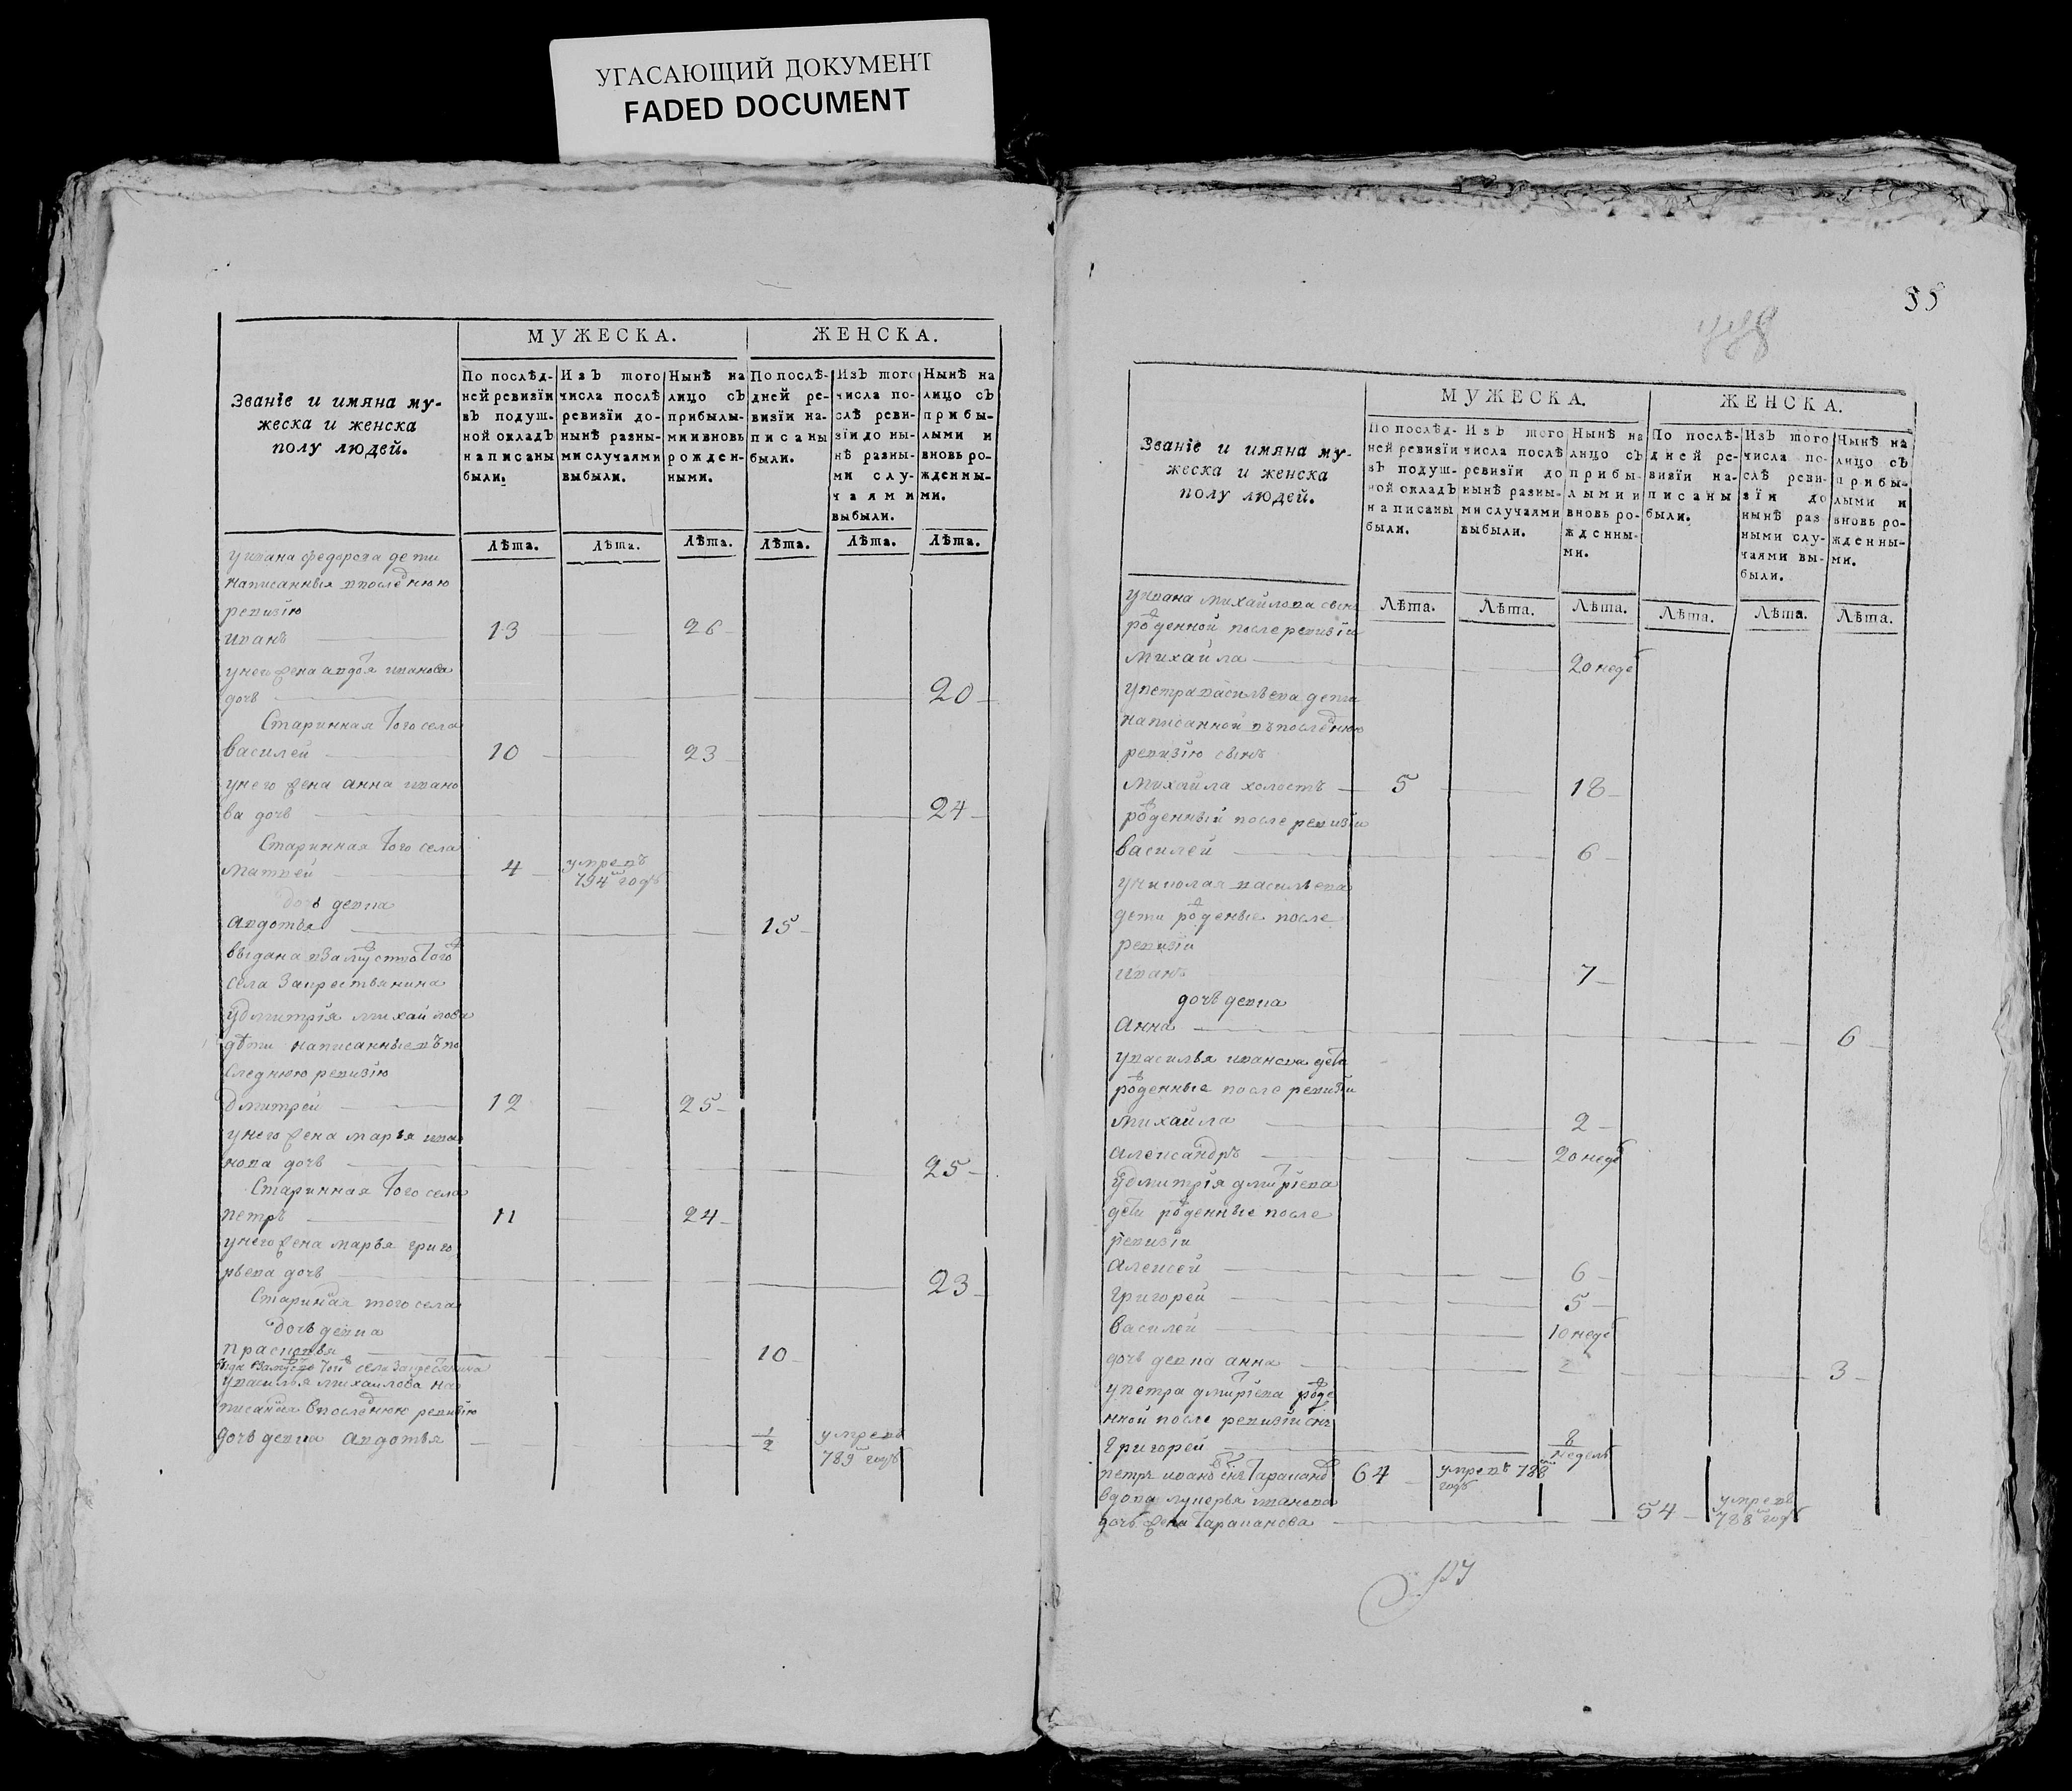 УГАСАЮЩИЙ ДОКУМЕНТ
FADED DOCUMENT
Званїе и имяна му-
жеска и женска
полу людей.
МУЖЕСКА.
ЖЕНСКА.
По послѣд-
ней ревизїи
въ подуш-
ной окладъ
написаны
были.
Изъ того
числа послѣ
ревизїи до-
нынѣ разны-
ми случаями
выбыли.
Нынѣ на
лицо съ
прибылы-
ми и вновь
рожден-
ными.
По послѣ-
дней ре-
визїи на-
писаны
были.
Изъ того
числа по-
слѣ реви-
зїи до ны-
нѣ разны-
ми слу-
чаями
выбыли.
Нынѣ на
лицо съ
прибы-
лыми и
вновь ро-
жденны-
ми.
Лѣта. Лѣта. Лѣта. Лѣта. Лѣта. Лѣта.
у ивана федорова дети
написанныя впоследнюю
ревизїю
иванъ 13 26
унего жена авдотя иванова
дочь 20
Старинная того села
василей 10 23
унего жена анна ивано
ва дочь 24
Старинная того села
матвей 4 умревъ
794 годѣ
дочь девка
авдотья 15
выдана взамужство того
села закрестьянина
удмитрїя михайлова
дѣти написанные въ по
следнюю ревизїю
дмитрей 12 25
унего жена марья ива
нова дочь 25
Старинная того села
петръ 11 24
унего жена марья григо
рьева дочь 23
Стариная того села
дочь девка
прасковья 10
увасилья михаилова на
писаная впоследнюю ревизїю
дочь девка авдотья 1/2 умре
789 годѣ
55
Званїе и имяна му-
жеска и женска
полу людей.
МУЖЕСКА.
ЖЕНСКА.
По послѣд-
ней ревизїи
въ подуш-
ной окладъ
написаны
были.
Изъ того
числа послѣ
ревизїи до
нынѣ разны-
ми случаями
выбыли.
Нынѣ на
лицо съ
прибы-
лыми и
вновь ро-
жденны-
ми.
По послѣ-
дней ре-
визїи на-
писаны
были.
Изъ того
числа по-
слѣ реви-
зїи до
нынѣ раз
ными слу-
чаями вы-
были.
Нынѣ на
лицо съ
прибы-
лыми и
вновь ро-
жденны-
ми.
Лѣта. Лѣта. Лѣта. Лѣта. Лѣта. Лѣта.
уивана михайлова сынъ
рожденной после ревизїи
михайла 20 недѣ
упетра васильева дети
написанной въ последнюю
ревизїю сынъ
михайла холостъ 5 18
рожденный после ревизїи
василей 6
униколая васильева
дети рожденые после
ревизїи
иванъ 7
дочь девка
анна 6
увасилья иванова дети
рожденные после ревизїи
михайла 2
александръ 20 недѣ
удмитрїя дмитрїева
дети рожденные после
ревизїи
алексей 6
григорей 5
василей 10 недѣ
дочь девка анна 3
упетра дмитрїева рожде
нной после ревизїи снъ
григорей 8 недель
петръ ивановъ снъ тарапановъ 64 умревъ 788
годѣ
вдова лукерья иванова
дочь жена тарапанова 54 умре
788 годѣ